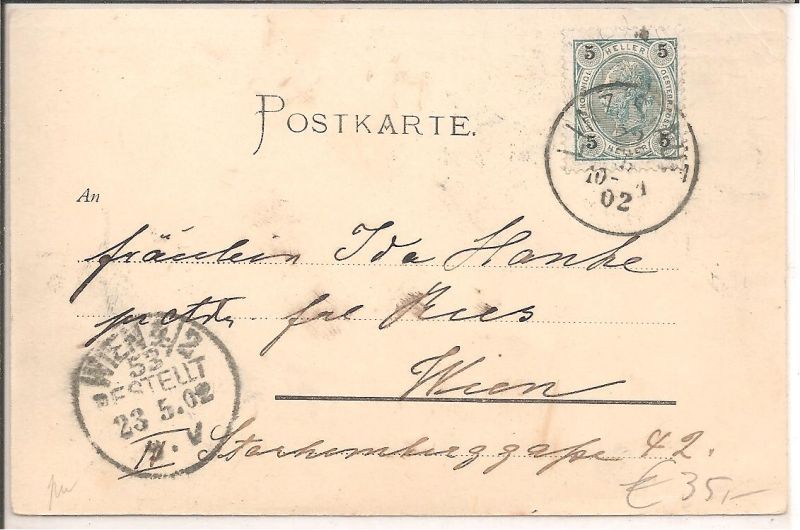 5 HELLER 5
5 HELLER 5
POSTKARTE.
10-
02
An
Fräulein Ida Hanke
Wien
WIEN 4/2
53
BESTELLT
23 5.02
V
IV. Starhemberggaße 42.
€ 35,-